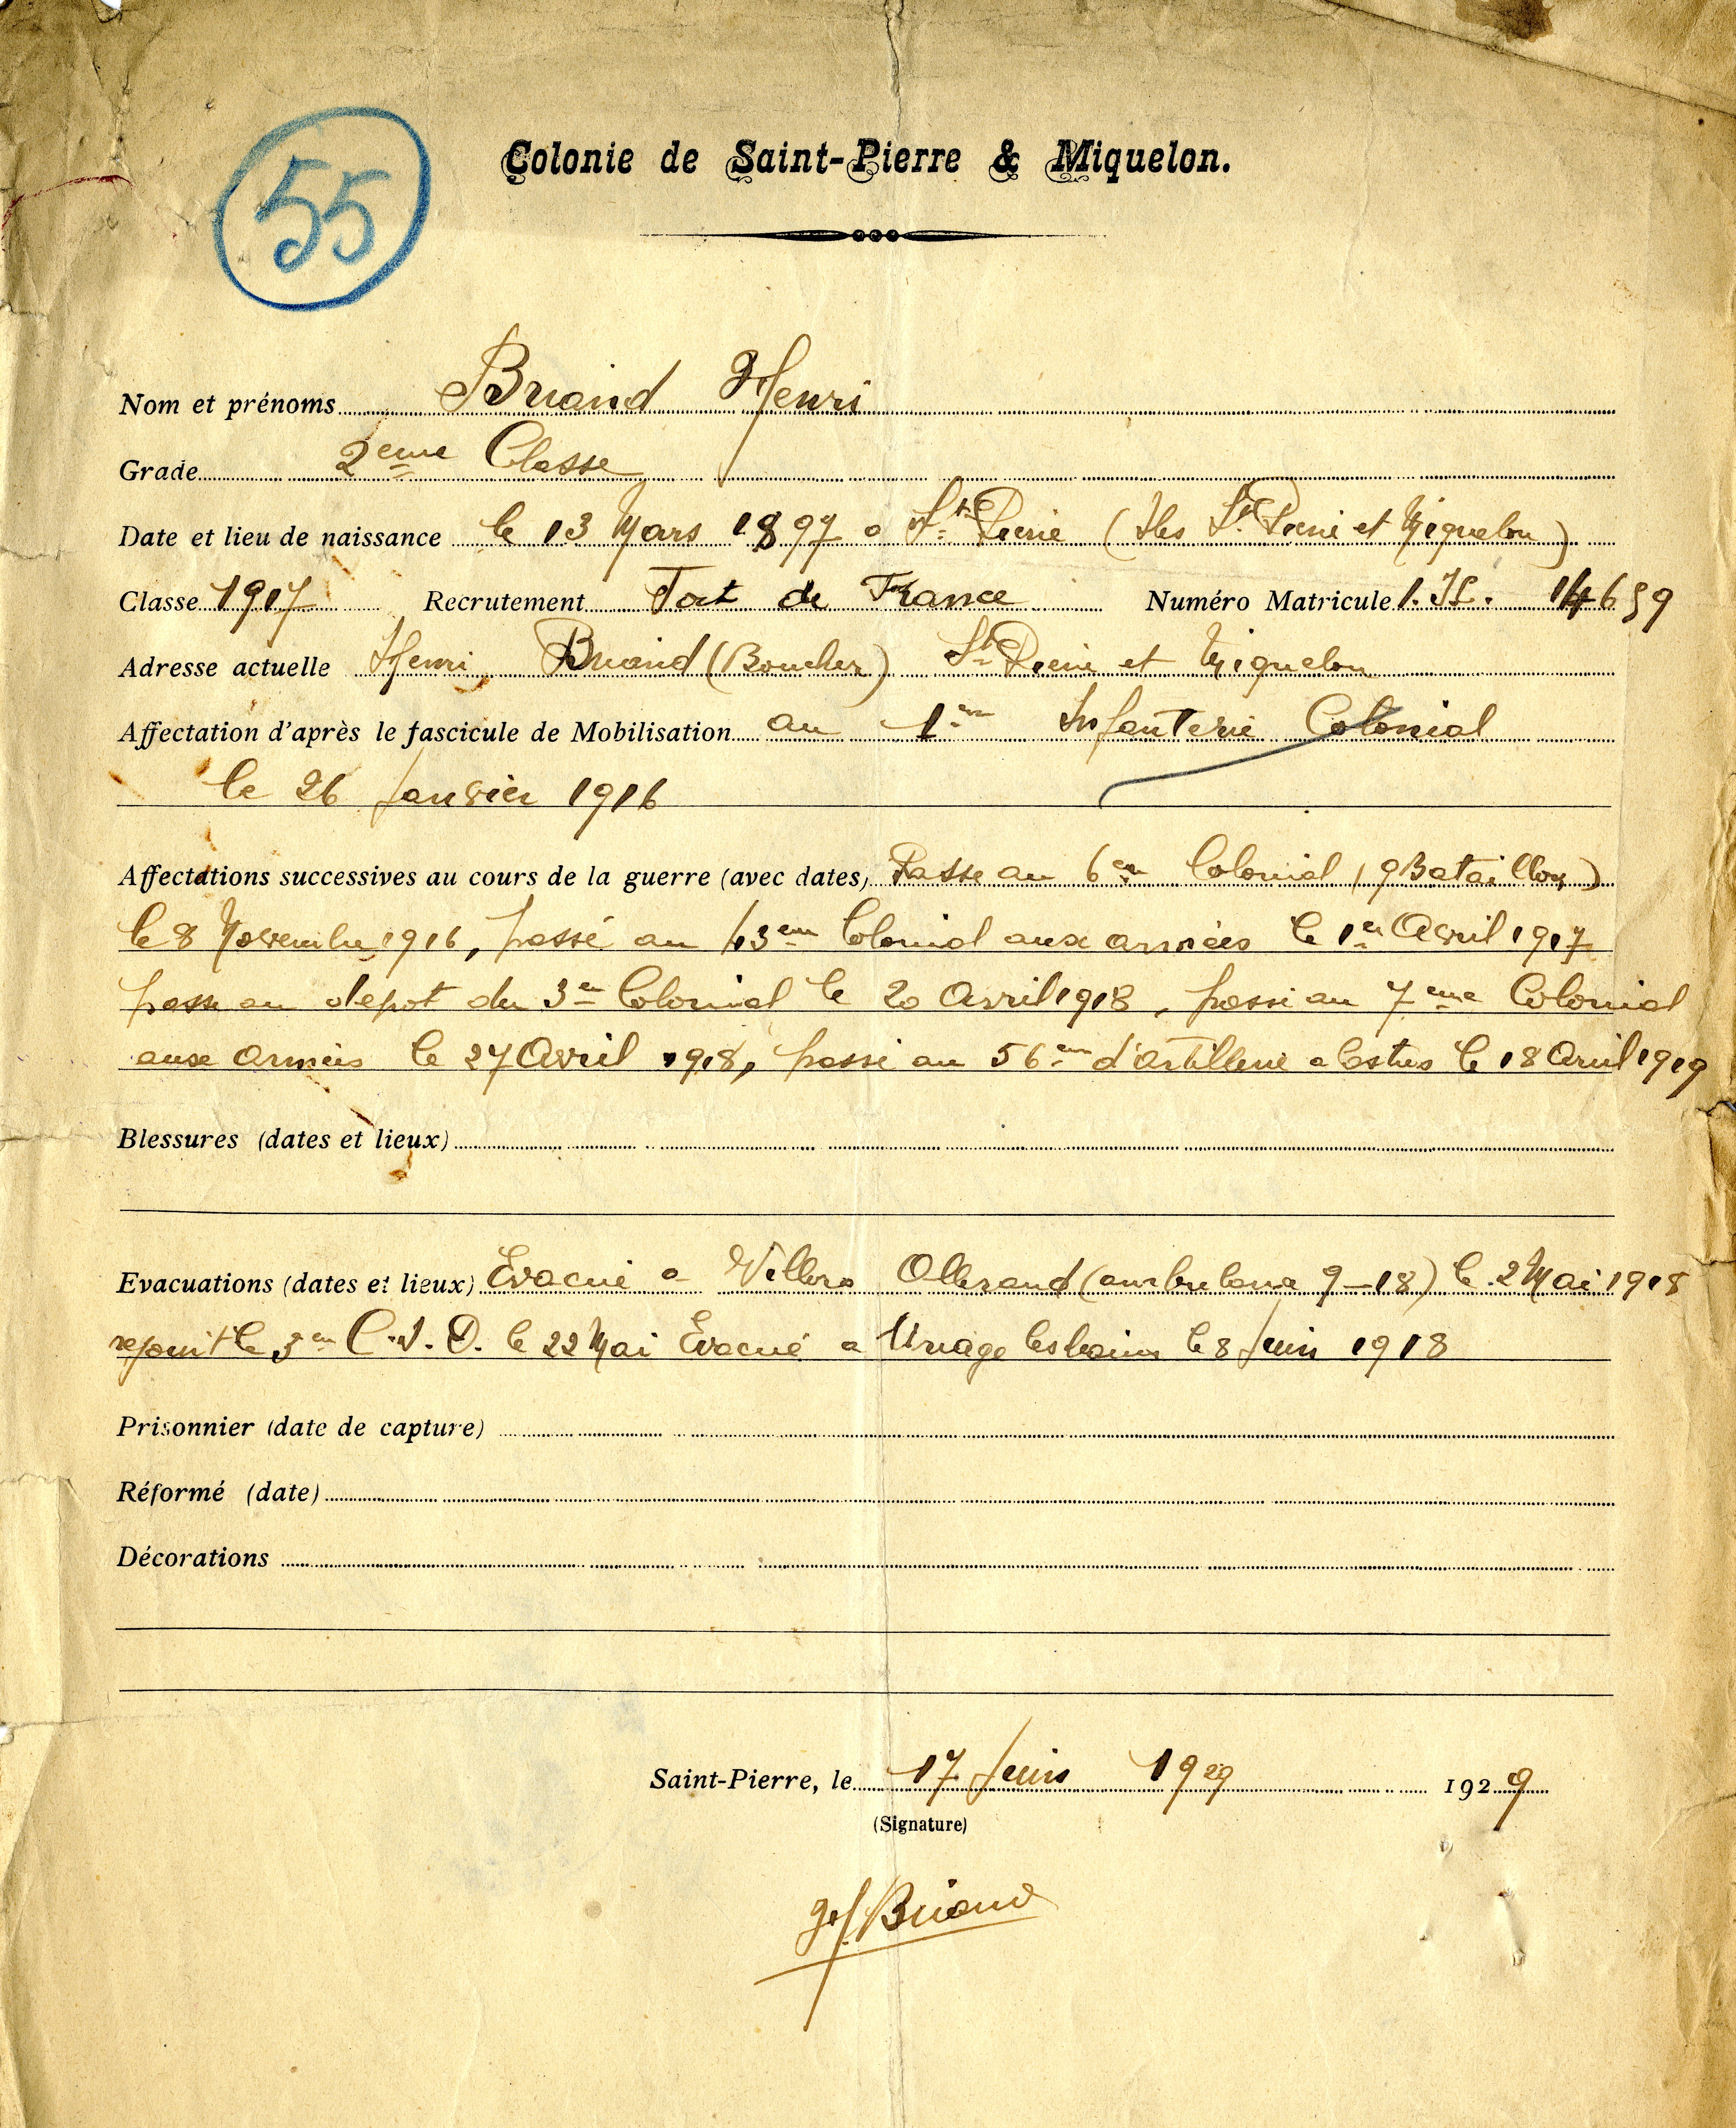 55
Colonie de Saint-Pierre & Miquelon.
Nom et prénoms Briand Henri
Grade 2eme Classe
Date et lieu de naissance le 13 Mars 1897 a St Pierre (Iles St Pierre et Miquelon)
Classe 1917 Recrutement Fort de France Numéro Matricule 14659
Adresse actuelle Henri Briand (Boucher) St Pierre et Miquelon
Affectation d'après le fascicule de Mobilisation au 1er Infanterie Colonial
le 26 Janvier 1916
Affectations successives au cours de la guerre (avec dates) Passe au 6em Colonial (9 Bataillon)
le 8 Novembre 1916, passé au 43em Colonial aux armées le 1er Avril 1917
passe au depot du 3em Colonial le 20 Avril 1918, passé au 7eme Colonial
aux armées le 27 Avril 1918, passé au 56em d'artillerie a Castres le 18 Avril 1919
Blessures (dates et lieux)
Evacuations (dates et lieux) Evacué a Villers Allerand (ambulance 9-18) le 2 Mai 1918
rejoint le 3em C.I.D. le 22 Mai Evacué a Uriage les bains le 8 Juin 1918
Prisonnier (date de capture)
Réformé (date)
Décorations
Saint-Pierre, le 17 Juin 1929 1929
(Signature)
Briand